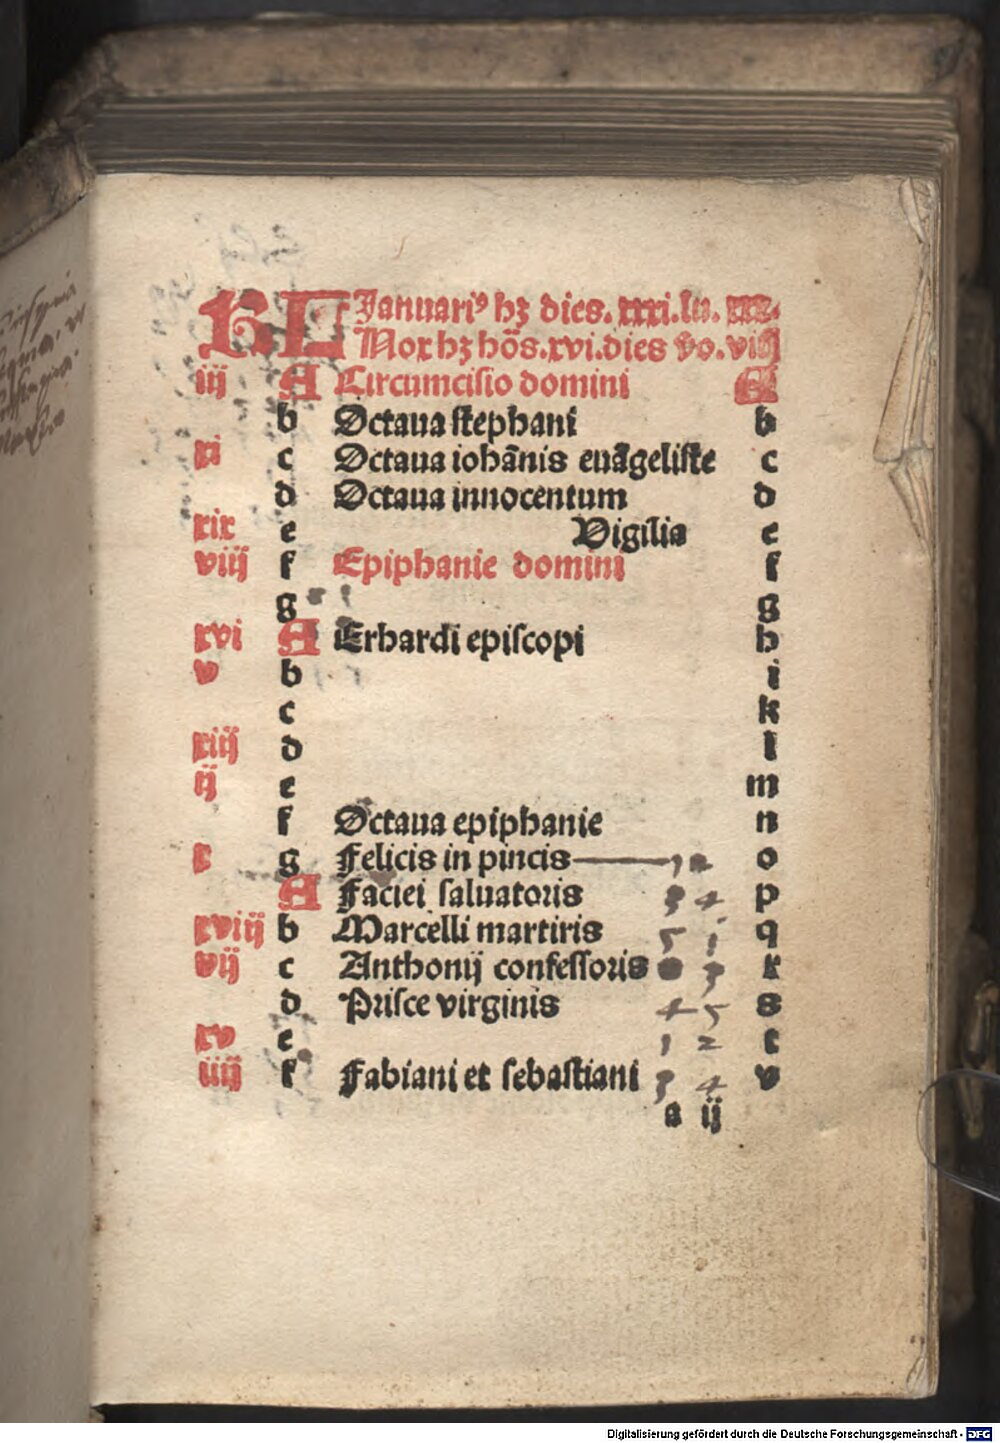 KL Januariꝰ hꝫ dies. xxxi. lu. xxx.
Nox hꝫ hõs. xvi. dies vo. viij
iij A Circumcisio domini A
b Octaua stephani b
xi c Octaua iohãnis euãgeliste c
d Octaua innocentum d
xix e Vigilia e
viij f Epiphanie domini f
g g
xvi A Erhardi episcopi h
v b i
c k
xiij d l
ij e m
f Octaua epiphanie n
x g Felicis in pincis 1 2 o
A Faciei saluatoris 3 4 p
xviij b Marcelli martiris 5 1 q
vij c Anthonij confessoris 3 r
d Prisce virginis 4 5 s
xv e 1 2 t
iiij f Fabiani et sebastiani 3 4 v
a ij
Digitalisierung gefördert durch die Deutsche Forschungsgemeinschaft - DFG